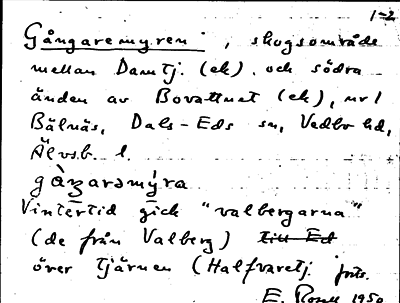 1-2
Gångaremyren, skogsområde
mellan Damtj. (ek). och södra
änden av Bovattnet (ek), nr 1
Bälnäs, Dals-Eds sn, Vedbo hd,
Älvsb. l.
gàŋarəmýra
Vintertid gick "valbergarna"
(de från Valberg) till Ed
över tjärnen (Halfvaretj. forts.
E. Rosell 1950